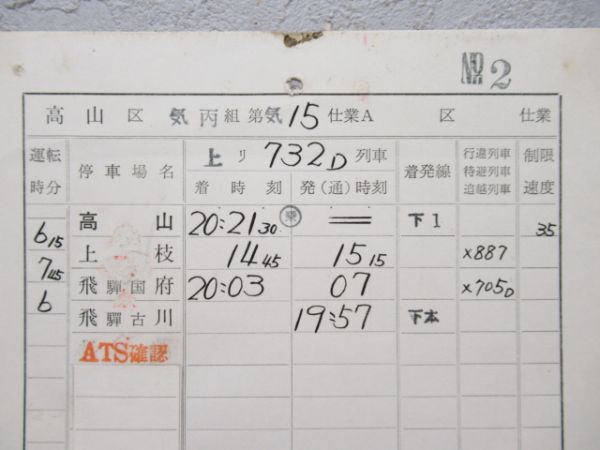 №2
高山区 気丙組第気15仕業A 区 仕業
運転時分 停車場名 上り 732D 列車 着発線 行違列車 待避列車 追越列車 制限速度
着時刻 発(通)時刻
高山 20:21 30 乗 = 下1 35
6 15
上枝 14 45 15 15 ×887
7 45
飛騨国府 20:03 07 ×705D
6
飛騨古川 19:57 下本
ATS確認